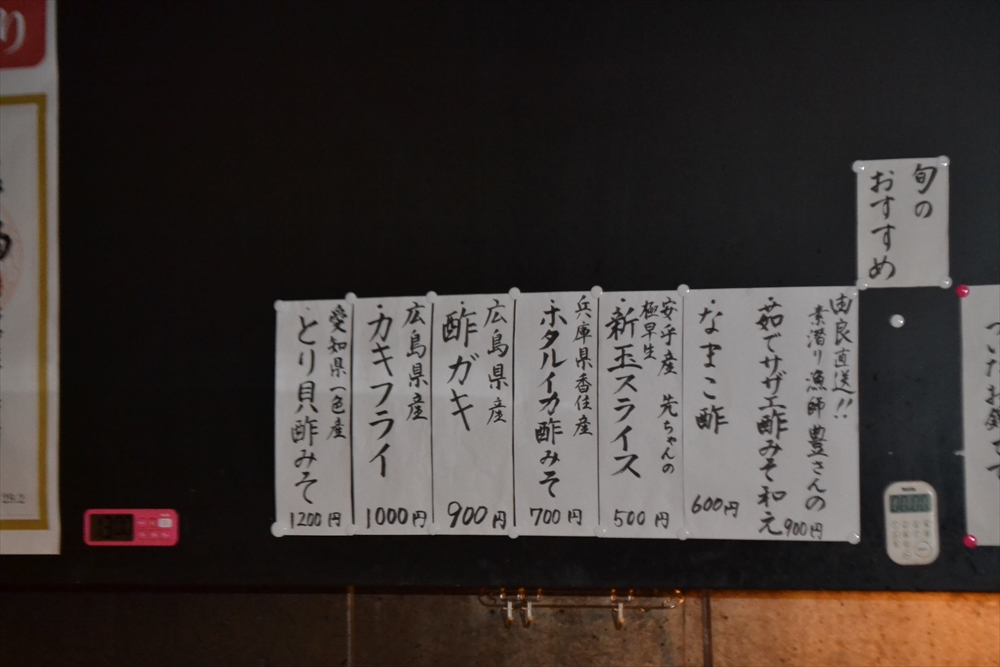 旬の
おすすめ
由良直送!!
素潜り漁師 豊さんの
茹でサザエ酢みそ和え
900円
・なまこ酢
600円
安乎産 先ちゃんの
極早生
・新玉スライス
500円
兵庫県香住産
・ホタルイカ酢みそ
700円
広島県産
・酢ガキ
900円
広島県産
・カキフライ
1000円
愛知県一色産
・とり貝酢みそ
1200円